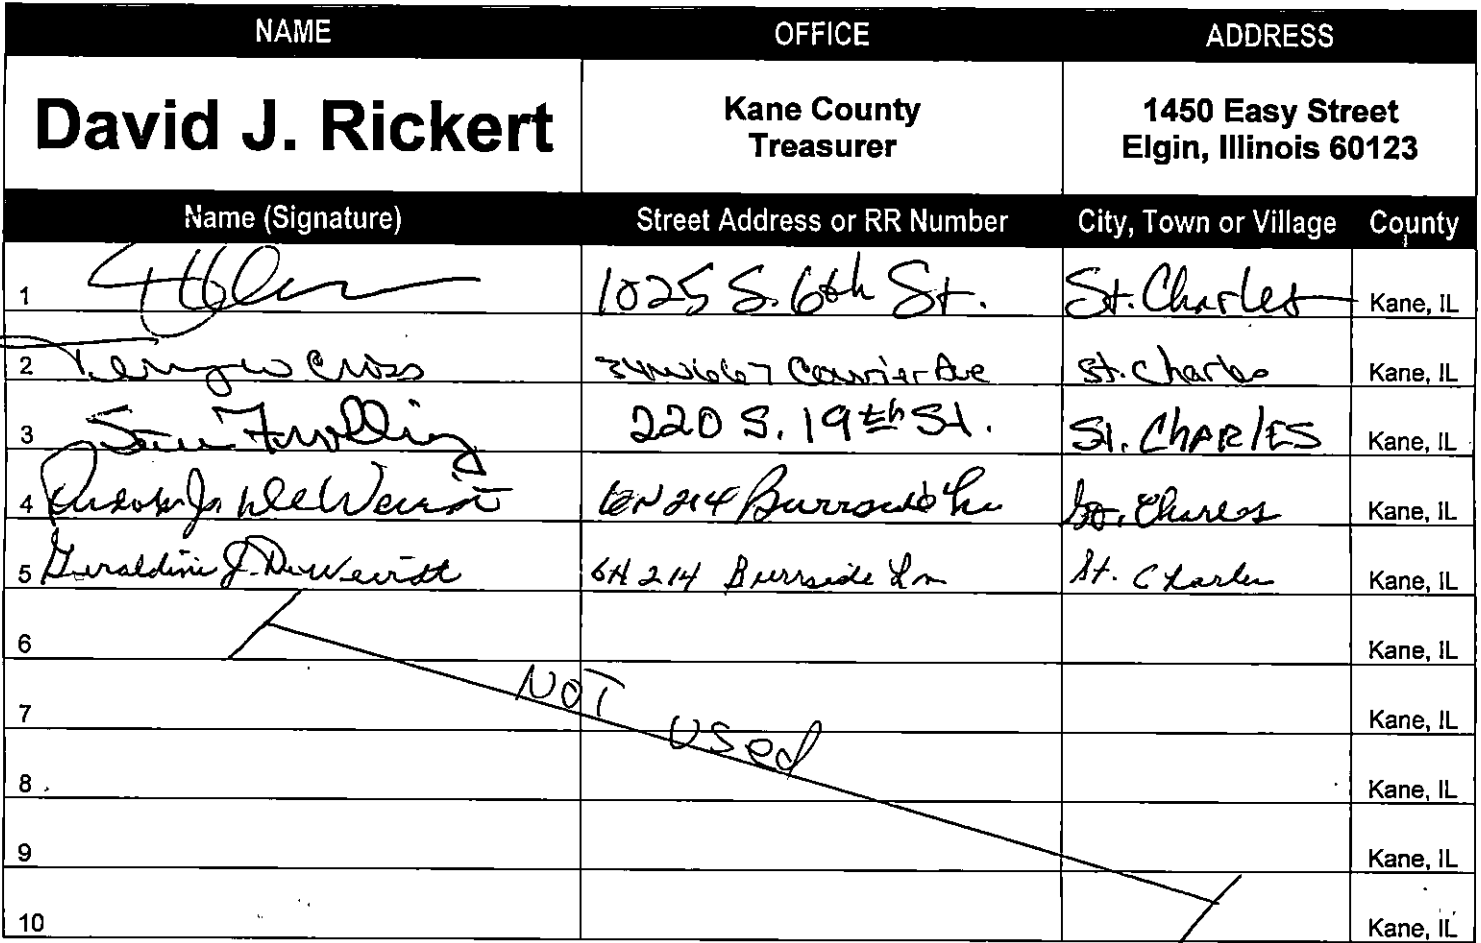 NAME OFFICE ADDRESS
David J. Rickert Kane County Treasurer 1450 Easy Street Elgin, Illinois 60123
Name (Signature) Street Address or RR Number City, Town or Village County
1 1025 S. 6th St. St. Charles Kane, IL
2 Cross Courier Ave St. Charles Kane, IL
3 220 S. 19th St. St. CHARlES Kane, IL
4 DeWeirdt 6N214 Burnside Ln St. Charles Kane, IL
5 Geraldine J. DeWeirdt 6N214 Burnside Ln St. Charles Kane, IL
6 Kane, IL
NOT
7 Kane, IL
USed
8 Kane, IL
9 Kane, IL
10 Kane, IL